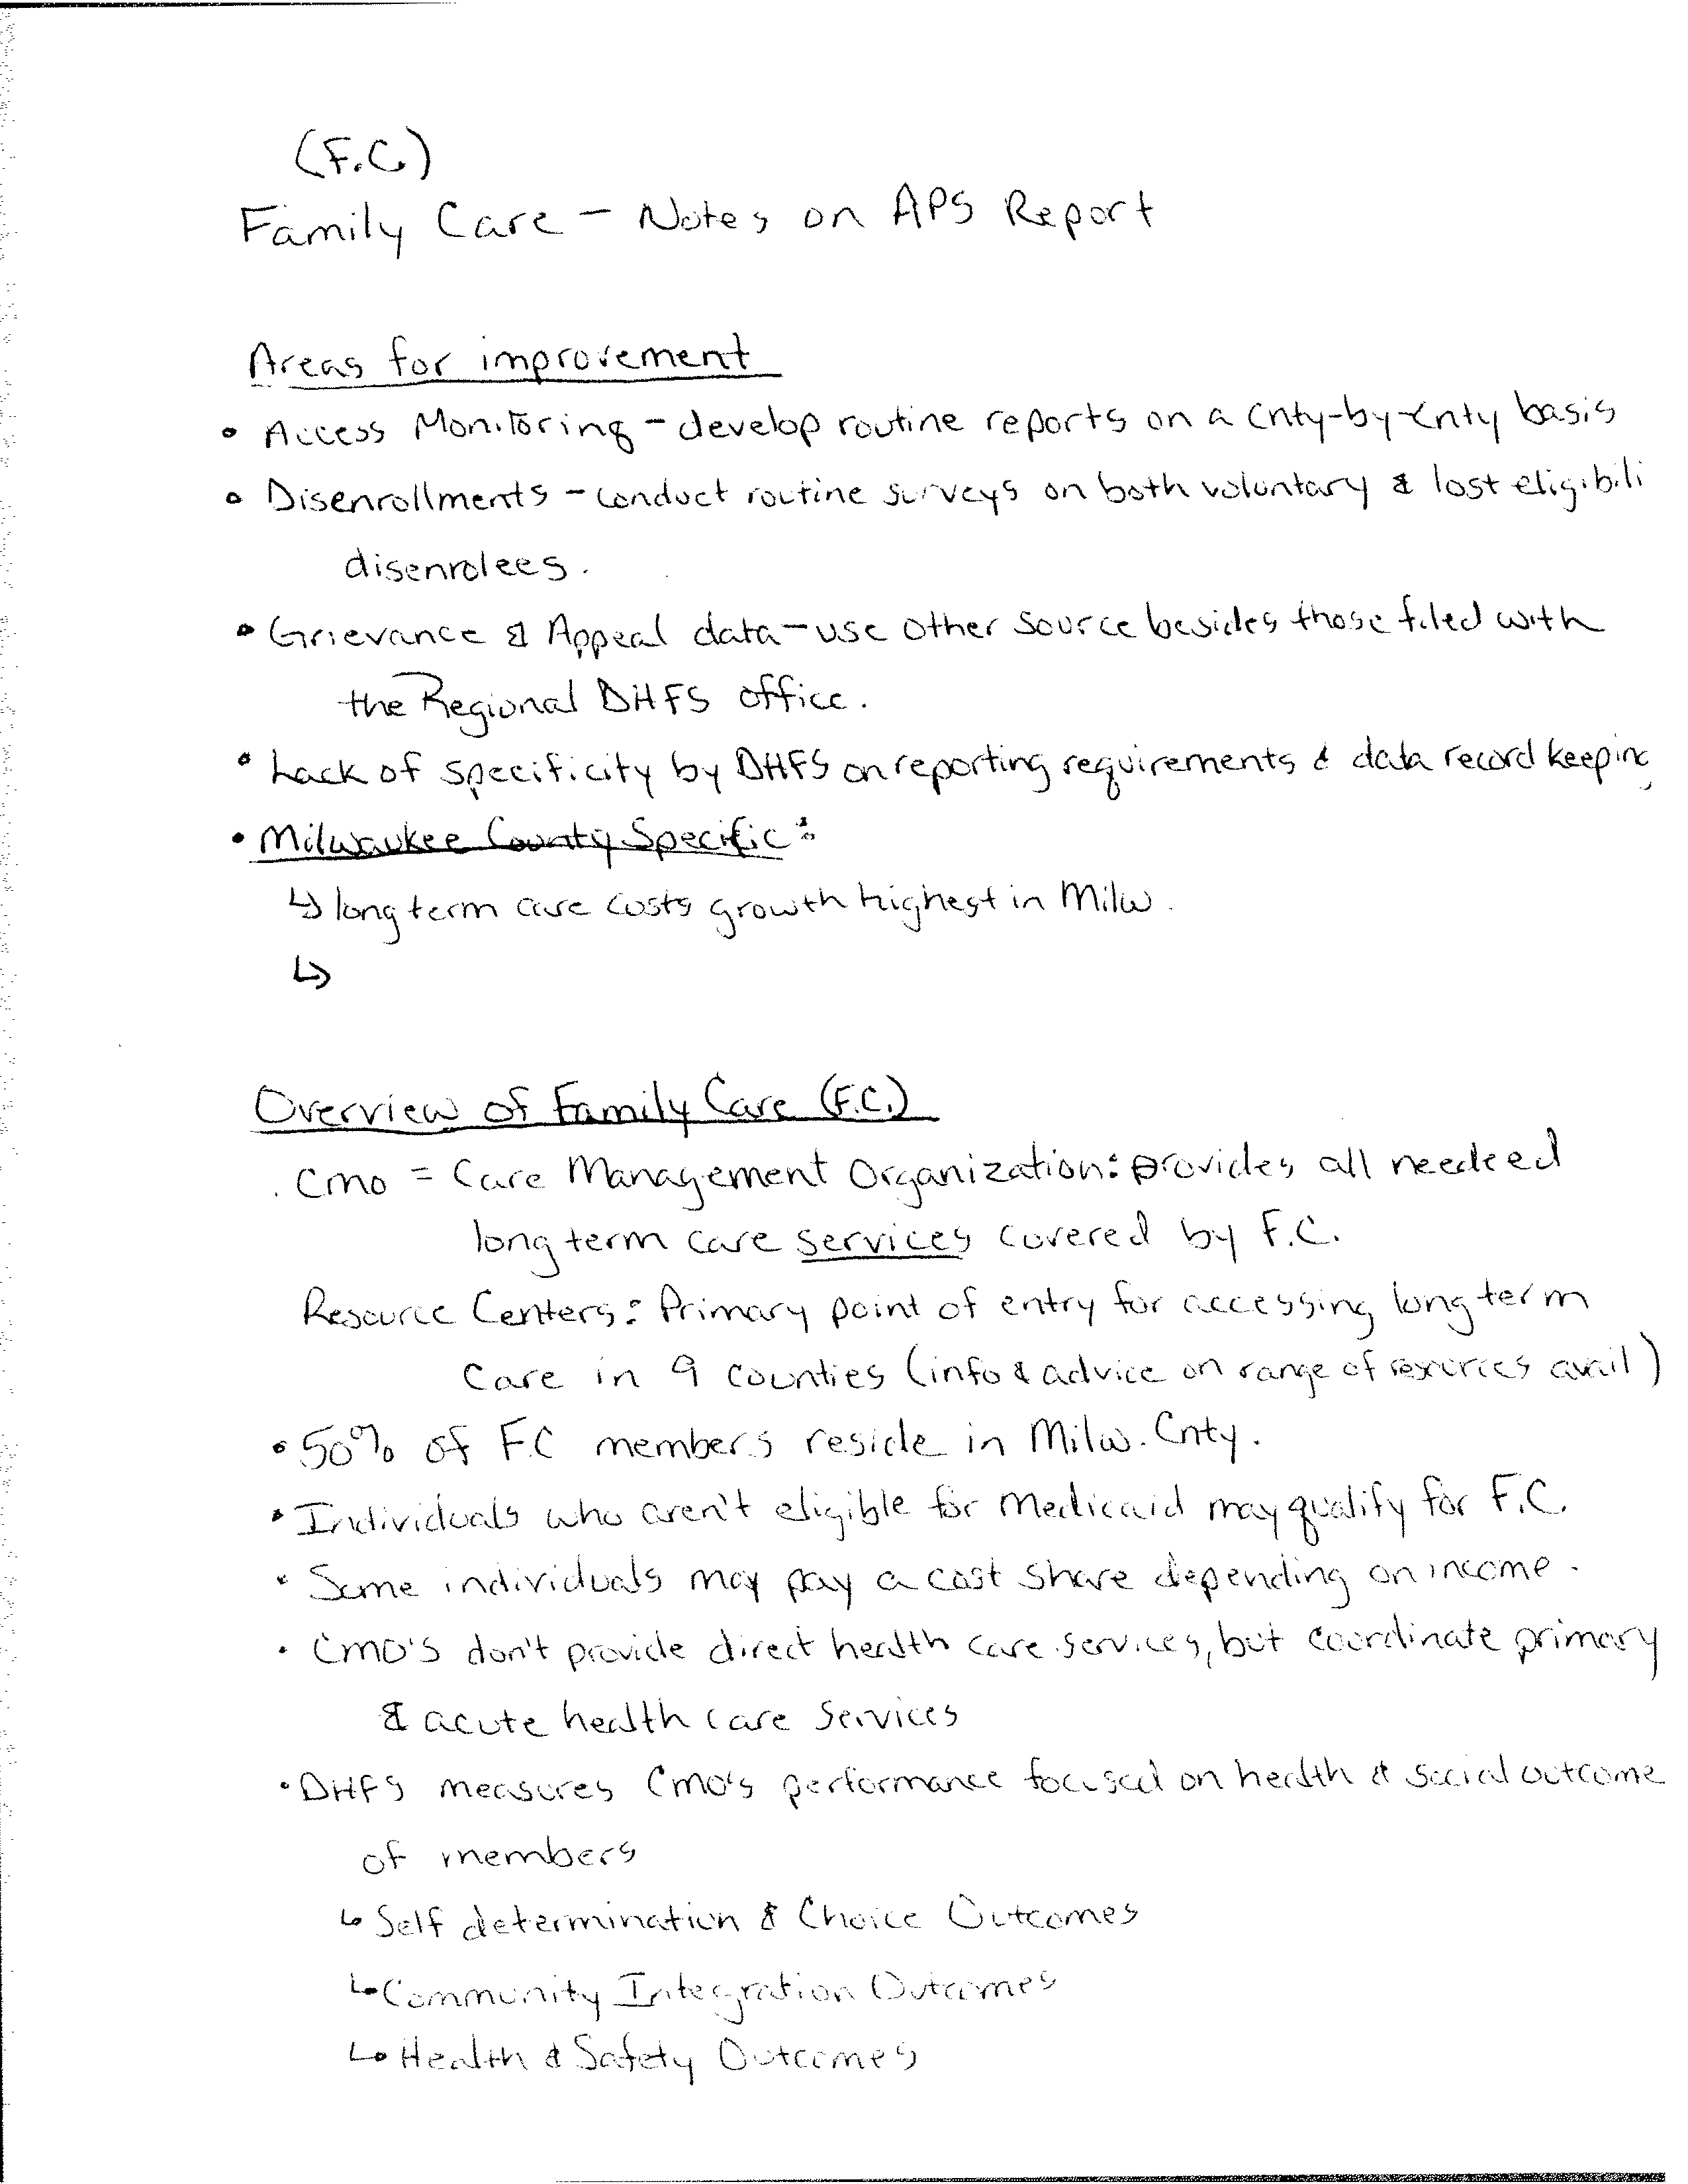 (F.C.)
Family Care - Notes on APS Report
Areas for improvement
• Access Monitoring - develop routine reports on a Cnty-by-Cnty basis
• Disenrollments - conduct routine surveys on both voluntary & lost eligibili
disenrolees.
• Grievance & Appeal data - use other source besides those filed with
the Regional DHFS office.
• Lack of specificity by DHFS on reporting requirements & data record keeping
• Milwaukee County Specific:
↳ long term care costs growth highest in Milw.
↳
Overview of Family Care (F.C.)
. CMO = Care Management Organization: provides all needed
long term care services covered by F.C.
Resource Centers: Primary point of entry for accessing long term
Care in 9 counties (info & advice on range of avail)
• 50% of F.C members reside in Milw. Cnty.
• Individuals who aren't eligible for Medicaid may qualify for F.C.
• Some individuals may pay a cost share depending on income.
• CMO's don't provide direct health care services, but coordinate primary
& acute health care services
• DHFS measures CMO's performance focused on health & social outcome
of members
↳ Self determination & Choice Outcomes
↳ Community Integration Outcomes
↳ Health & Safety Outcomes